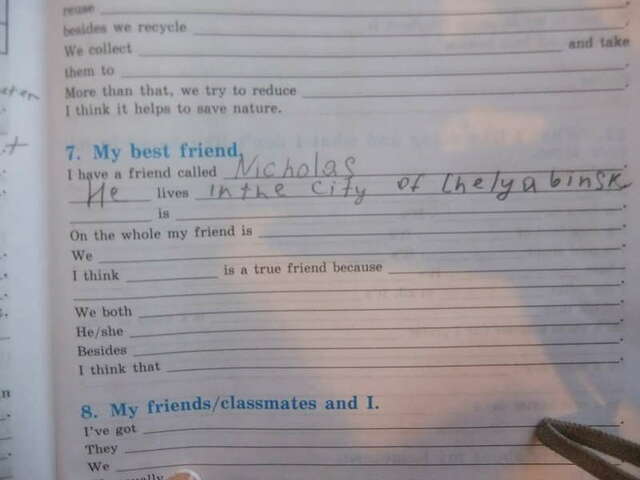 reuse ___.
besides we recycle ___.
We collect ___ and take
them to ___.
More than that, we try to reduce ___.
I think it helps to save nature.
7. My best friend.
I have a friend called Nicholas.
He lives in the city of Chelyabinsk.
___ is ___.
On the whole my friend is ___.
We ___.
I think ___ is a true friend because ___
___.
We both ___.
He/she ___.
Besides ___.
I think that ___.
8. My friends/classmates and I.
I've got ___.
They ___.
We ___